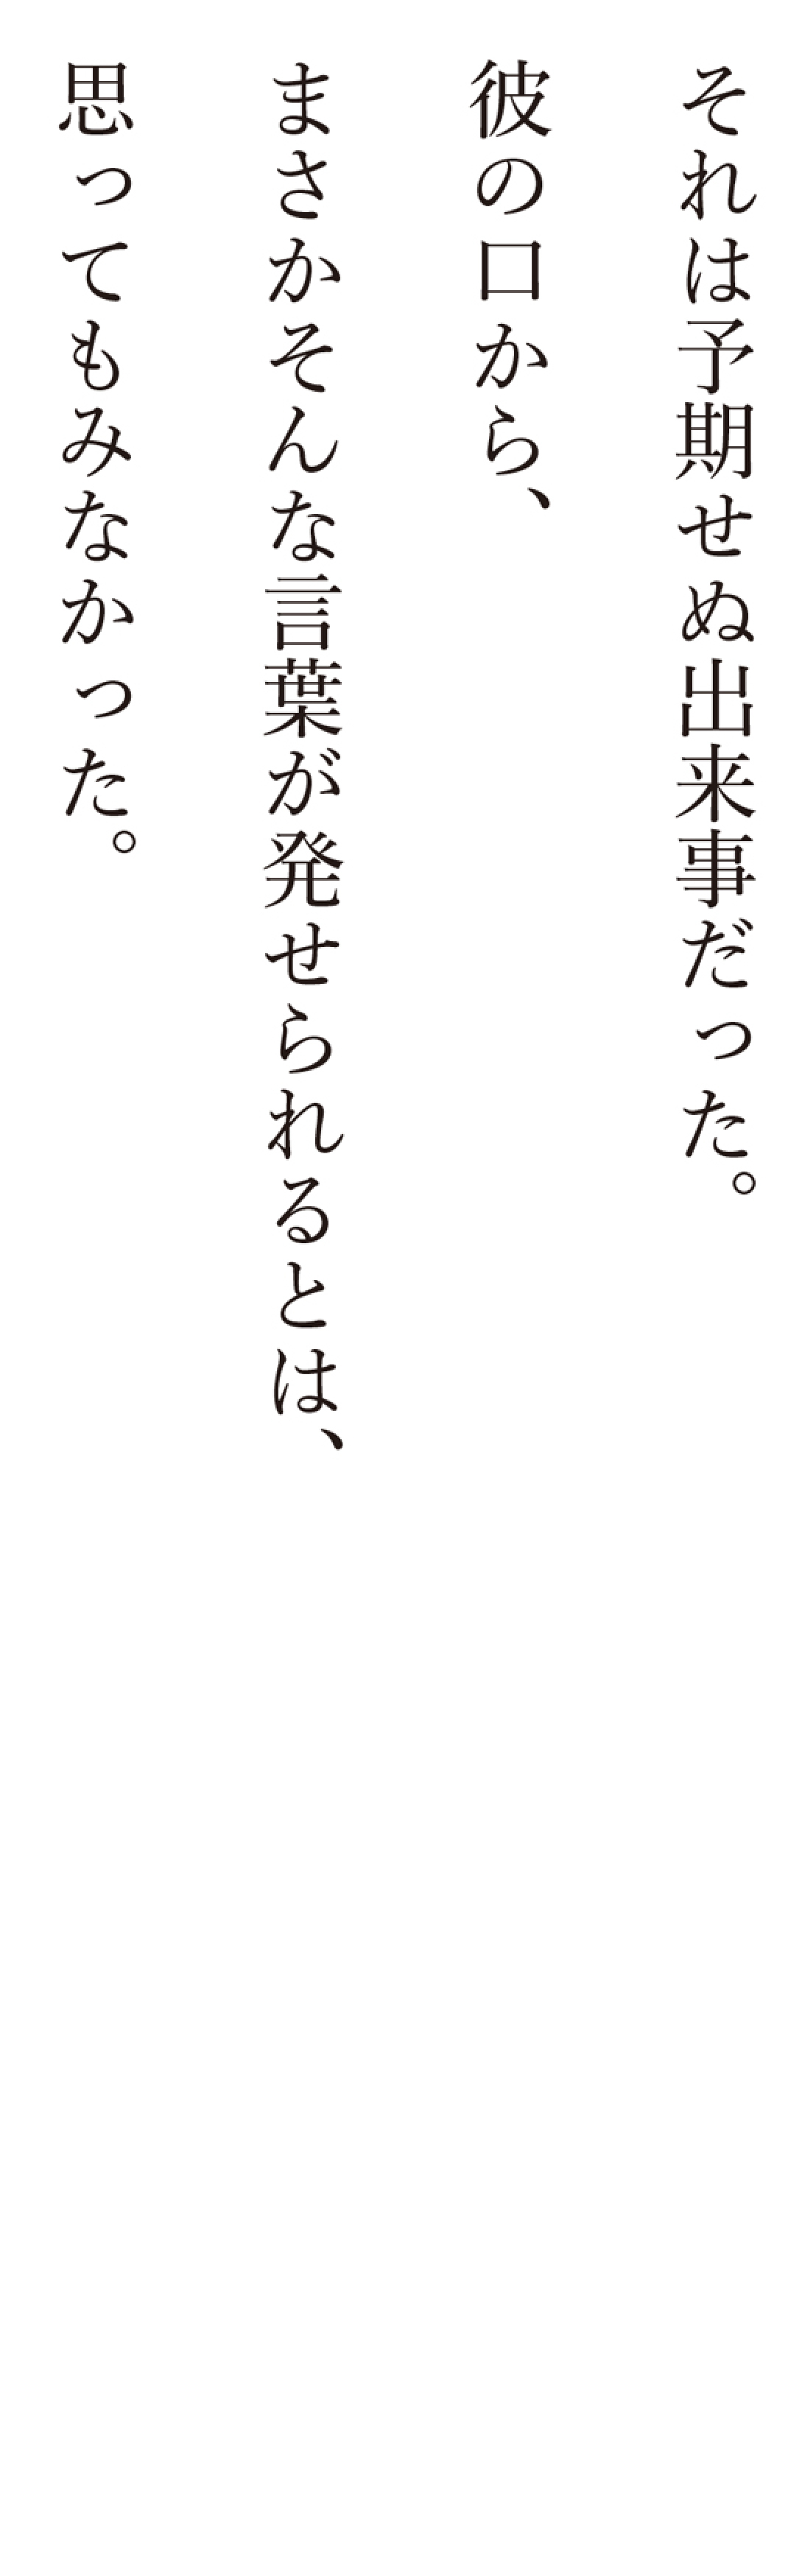 それは予期せぬ出来事だった。
彼の口から、
まさかそんな言葉が発せられるとは、
思ってもみなかった。